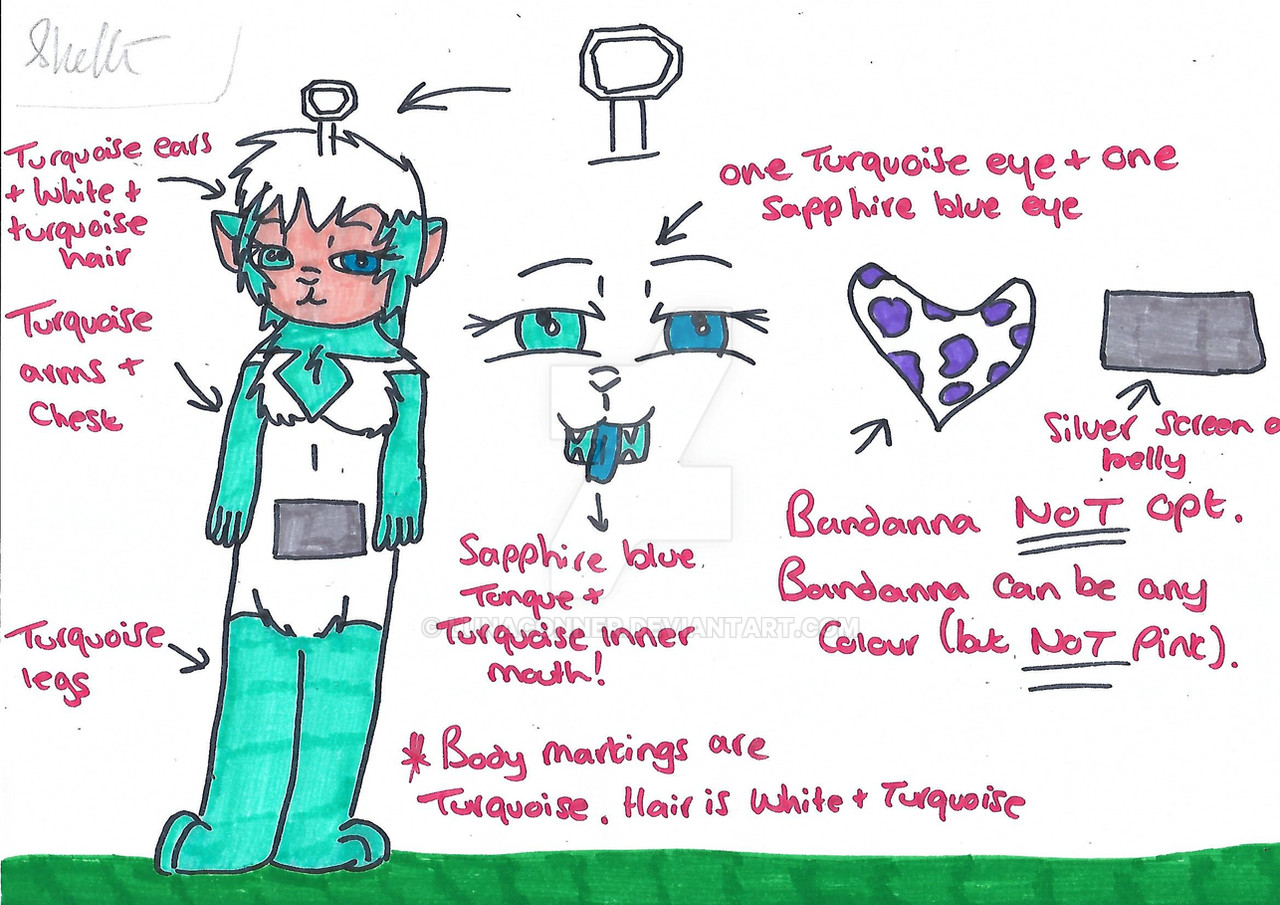 Turquoise ears
+ White +
turquoise
hair
one Turquoise eye + one
Sapphire blue eye
Turquoise
arms +
Chest
Silver screen o
belly
Bandanna NOT opt.
Bandanna can be any
Colour (but NOT Pink).
Sapphire blue
Tongue +
Turquoise inner
mouth!
© LUNACONNER.DEVIANTART.COM
Turquoise
legs
* Body markings are
Turquoise. Hair is White + Turquoise